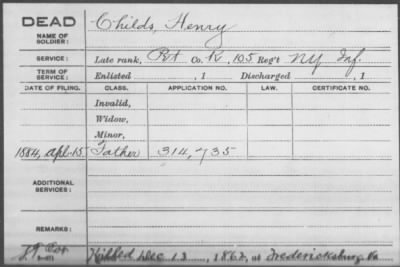 DEAD
NAME OF SOLDIER: Childs, Henry
SERVICE: Late rank, Pvt Co. K, 105 Reg't NY Inf.
TERM OF SERVICE: Enlisted , 1 Discharged , 1
DATE OF FILING. CLASS. APPLICATION NO. LAW. CERTIFICATE NO.
Invalid,
Widow,
Minor,
1884, Apl. 15 Father 314,735
ADDITIONAL SERVICES:
REMARKS:
Killed Dec 13, 1862, at Fredericksburg Va